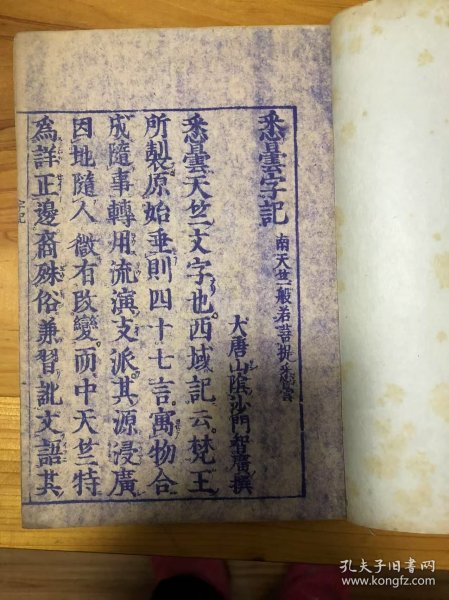 悉曇字記 南天竺般若菩提悉曇
大唐山陰沙門智廣撰
悉曇天竺文字也西域記云梵王
所製原始垂則四十七言寓物合
成隨事轉用流演支派其源浸廣
因地隨人微有改變而中天竺特
爲詳正邊裔殊俗兼習訛文語其
孔夫子旧书网
www.kongfz.com